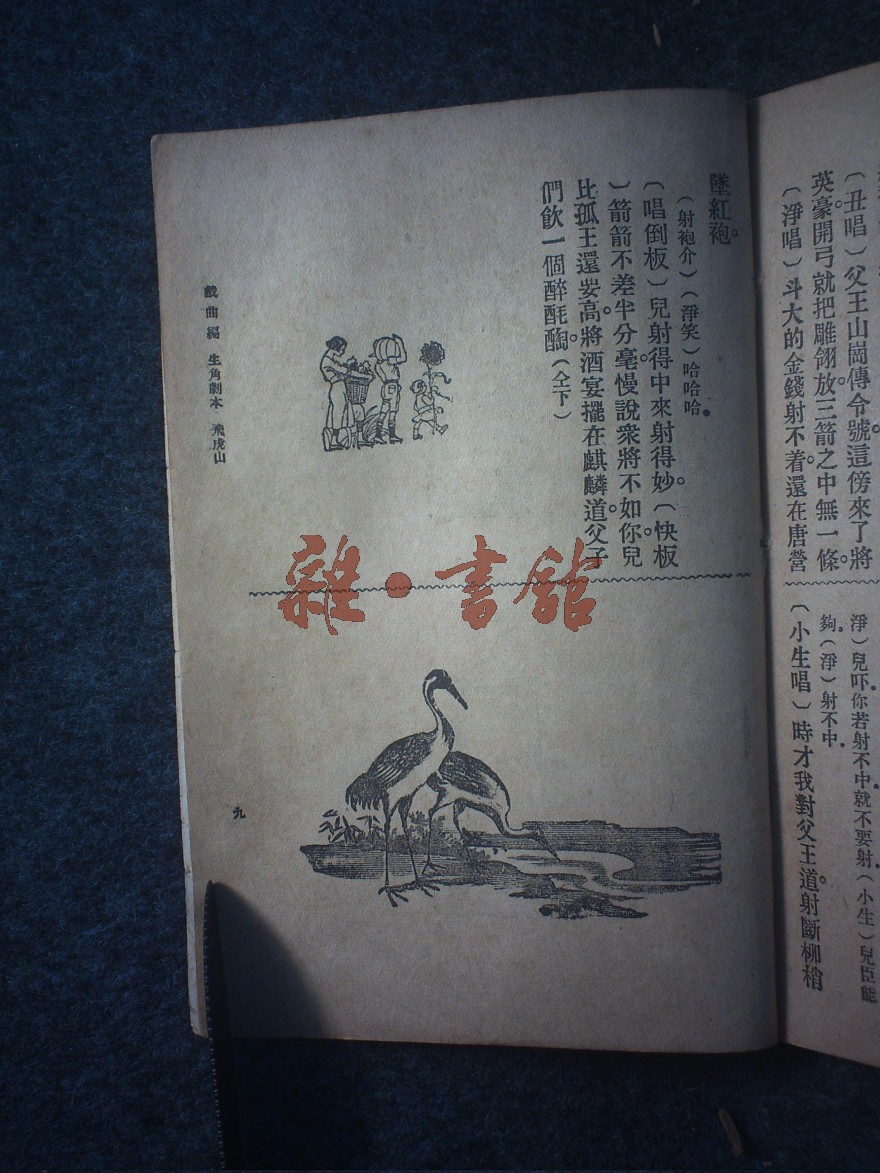 〔丑唱〕父王山崗傳令號。這傍來了將
英豪。開弓就把雕翎放。三箭之中無一條。
〔淨唱〕斗大的金錢射不着。還在唐營
淨）兒吓。你若射不中就不要射。（小生）兒臣能
夠。（淨）射不中。
〔小生唱〕時才我對父王道。射斷柳梢
墜紅袍。
（射袍介）（淨笑）哈哈哈。
〔唱倒板〕兒射得中來射得妙。〔快板
〕箭箭不差半分毫。慢說衆將不如你。兒
比孤王還妛高。將酒宴擺在麒麟道。父子
們飲一個醉酕醄。（仝下）
戲曲編 生角劇本 飛虎山
九
雜·書館